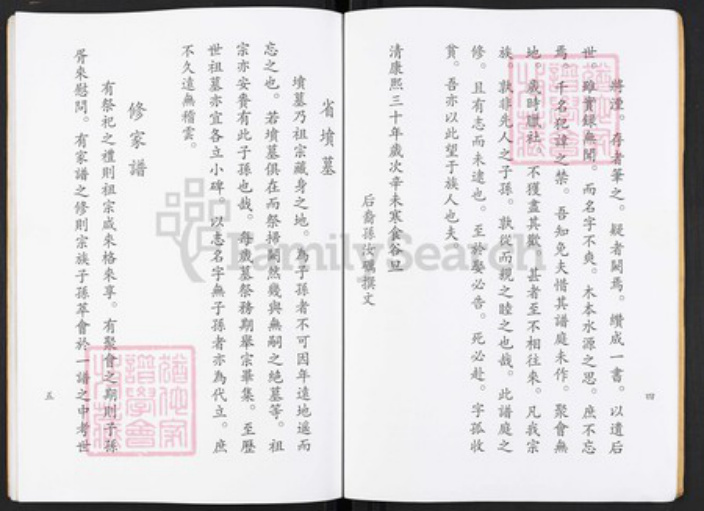 將湮。存者筆之。疑者闕焉。纘成一書。以遺后
世。雖實錄無聞。而名字不爽。木本水源之思。庶不忘
焉。千名祀諱之禁。吾知免夫惜其譜庭未作。聚會無
地。歲時臘社。不獲盡其歡。甚者至不相往來。凡我宗
族。孰非先人之子孫。孰從而親之睦之也哉。此譜庭之
修。且有志而未逮也。至於娶必告。死必赴。字孤收
貧。吾亦以此望于族人也夫。
清康熙三十年歲次辛未寒食谷旦
后裔孫汝礪撰文
四
省墳墓
墳墓乃祖宗藏身之地。為子孫者不可因年遠地遙而
忘之也。若墳墓俱在而祭掃闕然幾與無嗣之絶墓等。祖
宗亦安賚有此子孫也哉。每歲墓祭務期舉宗畢集。至歷
世祖墓亦宜各立小碑。以志名字無子孫者亦為代立。庶
不久遠無稽雲。
修家譜
有祭祀之禮則祖宗咸來格來享。有聚會之期則子孫
胥來慰問。有家譜之修則宗族子孫萃會於一譜之中考世
五
FamilySearch